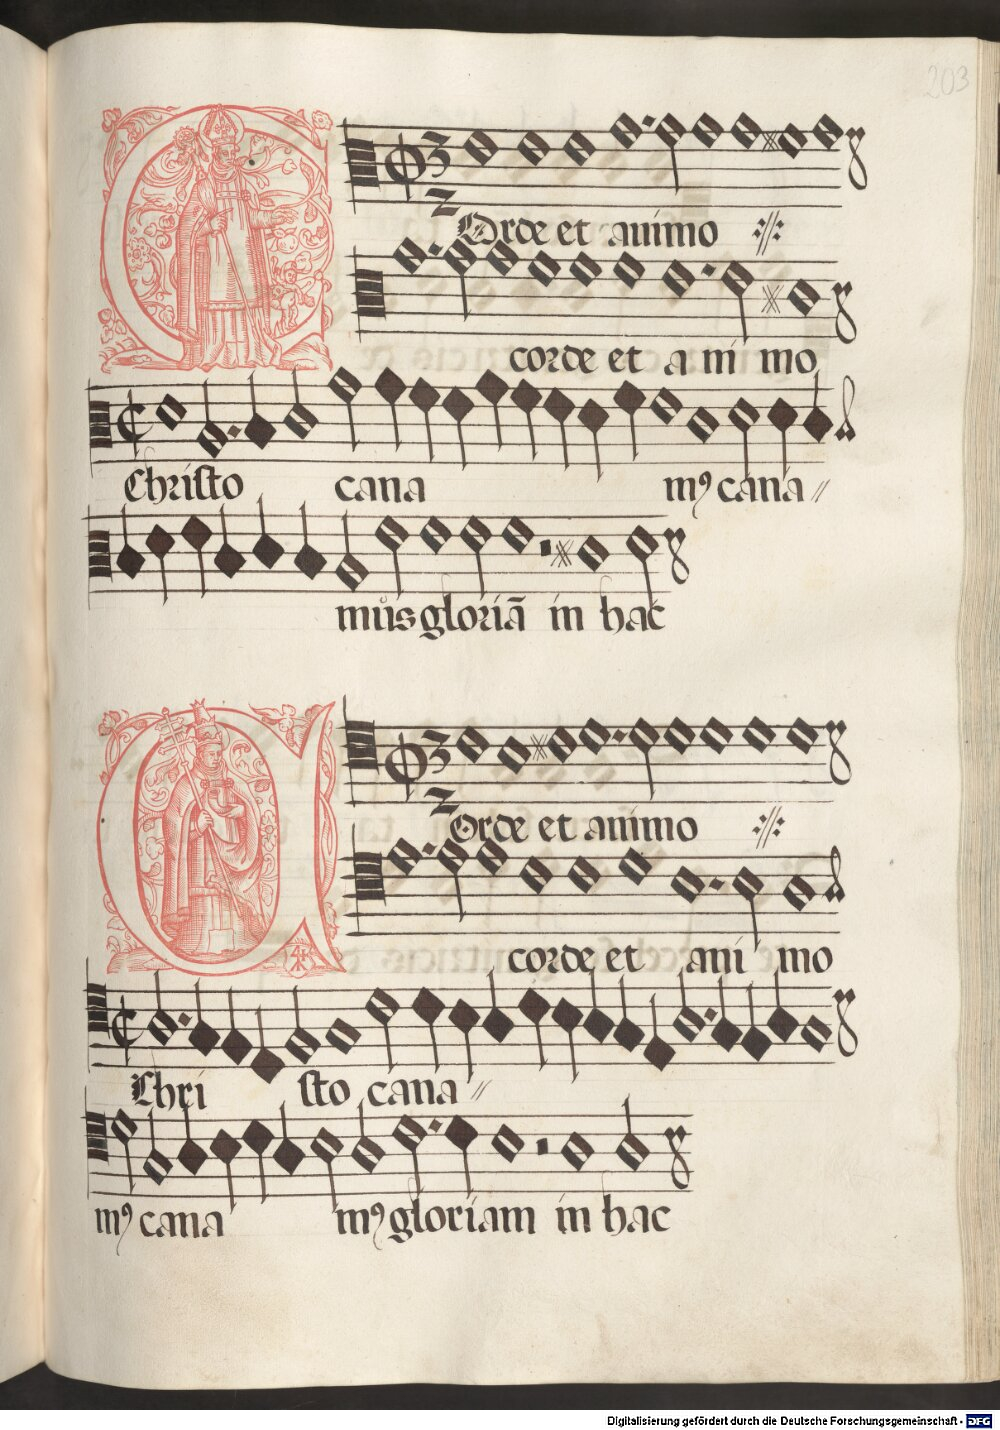 203
COrde et animo
corde et a ni mo
Christo cana mꝰ cana
můs gloriā in hac
COrde et animo
corde et ani mo
Chri sto cana
mꝰ cana mꝰ gloriam in hac
Digitalisierung gefördert durch die Deutsche Forschungsgemeinschaft - DFG